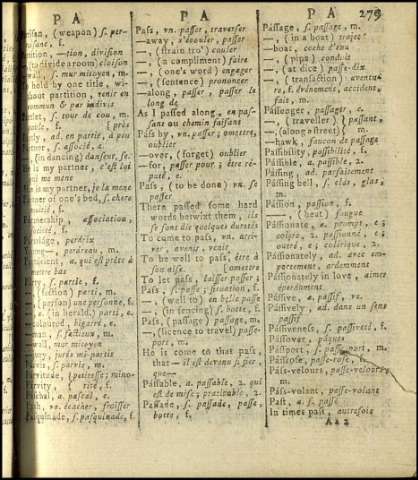 P A
P A
P A 279
(weapon) s. per-
tuisane, f.
—tion, division
(to divide a room) cloison
wall, s. mur mitoyen, m.
hold by one title, wi-
thout partition, tenir en
commun & par indivis
s. tour de cou, m.
{ près
ad. en partie, à peu
s. associé, e.
(in dancing) danseur, se
is my partner, c'est lui
qui me mène
is my partner, je la mene
of one's bed, s. chere
moitié, f.
Partnership, association,
société, f.
perdrix
perdreau, m.
a. qui est prête à
mettre bas
Party, s. partie, f.
(faction) parti, m.
(person) une personne, f.
a. (in herald.) parti, e.
coloured, bigarré, e.
man, s. factieux, m.
wall, mur mitoyen
jury, jurés mi-partis
s. parvis, m.
Parvitude { petitesse; mino-
Parvity { rité, f.
Paschal, a. pascal, e.
vn. écacher, froisser
Pasquinade, s. pasquinade, f.
Pass, vn. passer, traverser
—away, s'écouler, passer
—, (strain tro') couler
—, (a compliment) faire
—, (one's word) engager
—, (sentence) prononcer
—along, passer, passer le
long de
As I passed along, en pas-
sant ou chemin faisant
Pass by, vn. passer; omettre,
oublier
—over, (forget) oublier
—for, passer pour; être ré-
puté, e.
Pass, (to be done) vn. se
passer
There passed some hard
words betwixt them, ils
se sont dit quelques duretés
To come to pass, vn. arri-
ver, avenir, venir
To be well to pass, être à
son aise. [omettre
To let pass, laisser passer;
Pass, s. passe; situation, f.
—, (well to) en belle passe
—, (in fencing) s. botte, f.
Pass, (passage) passage, m.
—, (licence to travel) passe-
port, m.
He is come to that pass,
that— il est devenu si per-
que—
Passable, a. passable, 2. qui
est de mise; praticable, 2.
Passade, s. passade, passe,
botte, f.
Passage, s. passage, m.
—, (in a boat) trajet
—boat, coche d'eau
—, (pipe) conduit
—, (at dice) passe-dix
—, (transaction) aventu-
re, f. événement, accident,
fait, m.
Passenger, passager, e.
—, (traveller) } passant,
—, (along a street) } m.
—hawk, faucon de passage
Passibility, passibilité, f.
Passible, a. passible, 2.
Passing, ad. parfaitement
Passing bell, s. clas, glas,
m.
Passion, passion, f.
——, (heat) fougue
Passionate, a. prompt, e;
colère, 2. passionné, e;
outré, e; colérique, 2.
Passionately, ad. avec em-
portement, ardemment
Passionately in love, aimer
éperdûment
Passive, a. passif, ve.
Passively, ad. dans un sens
passif
Passiveness, s. passiveté, f.
Passover, pâques
Passport, s. passe-port, m.
Passrose, passe-rose, f.
Pass-velours, passe-velours,
m.
Pass-volant, passe-volant
Past, a. & s. passé
In times past, autrefois
A a 2